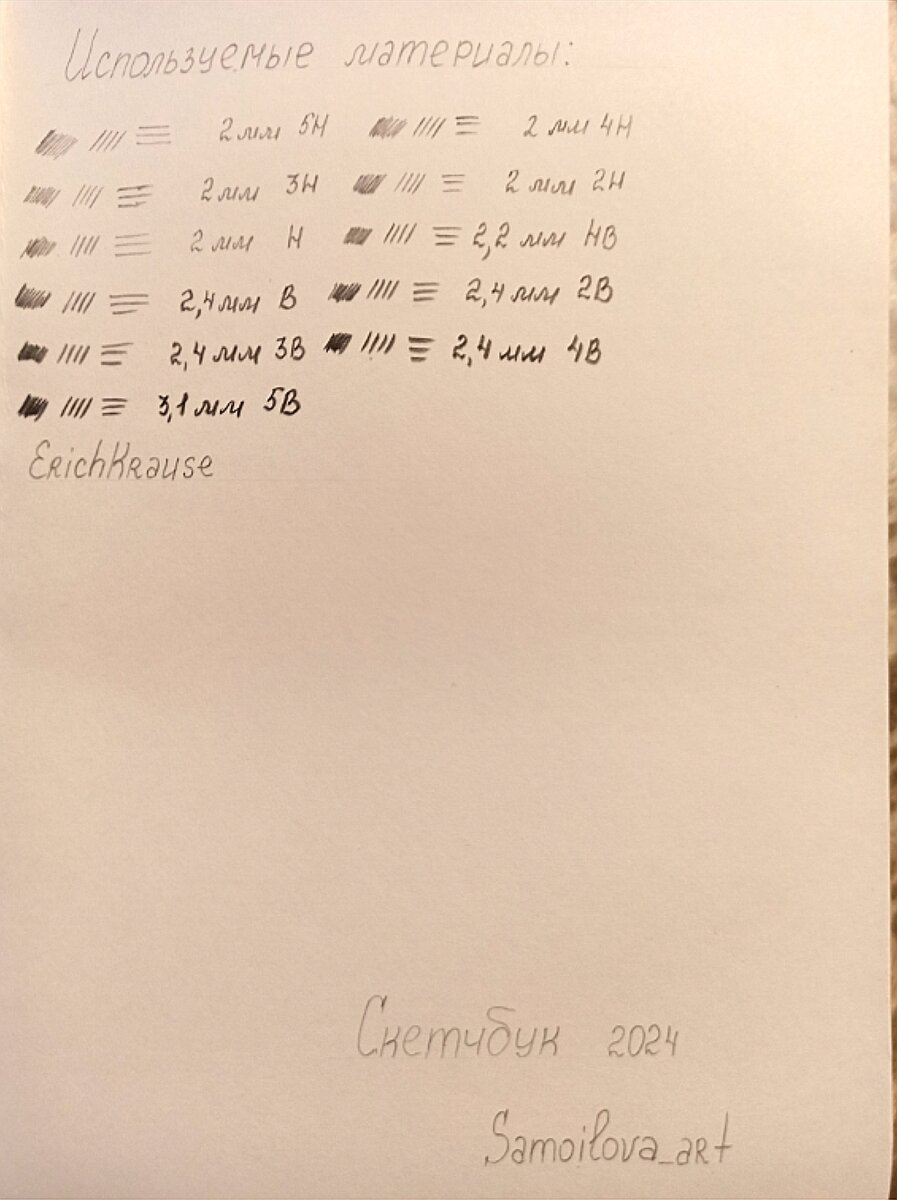 Используемые материалы:
2 мм 5H 2 мм 4H
2 мм 3H 2 мм 2H
2 мм H 2,2 мм HB
2,4 мм B 2,4 мм 2B
2,4 мм 3B 2,4 мм 4B
3,1 мм 5B
ErichKrause
Скетчбук 2024
Samoilova_art